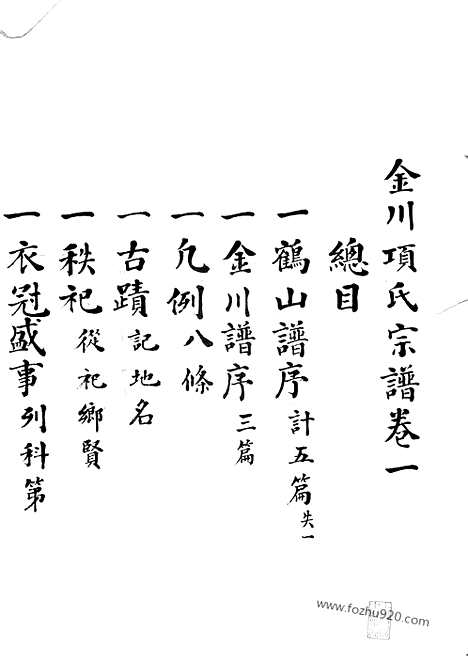 金川項氏宗譜卷一
總目
一鶴山譜序計五篇失一
一金川譜序三篇
一凡例八條
一古蹟記地名
一秩祀從祀鄉賢
一衣冠盛事列科第
www.fozhu920.com